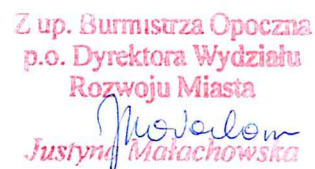 Z up. Burmistrza Opoczna
p.o. Dyrektora Wydziału
Rozwoju Miasta
Justyna Małachowska